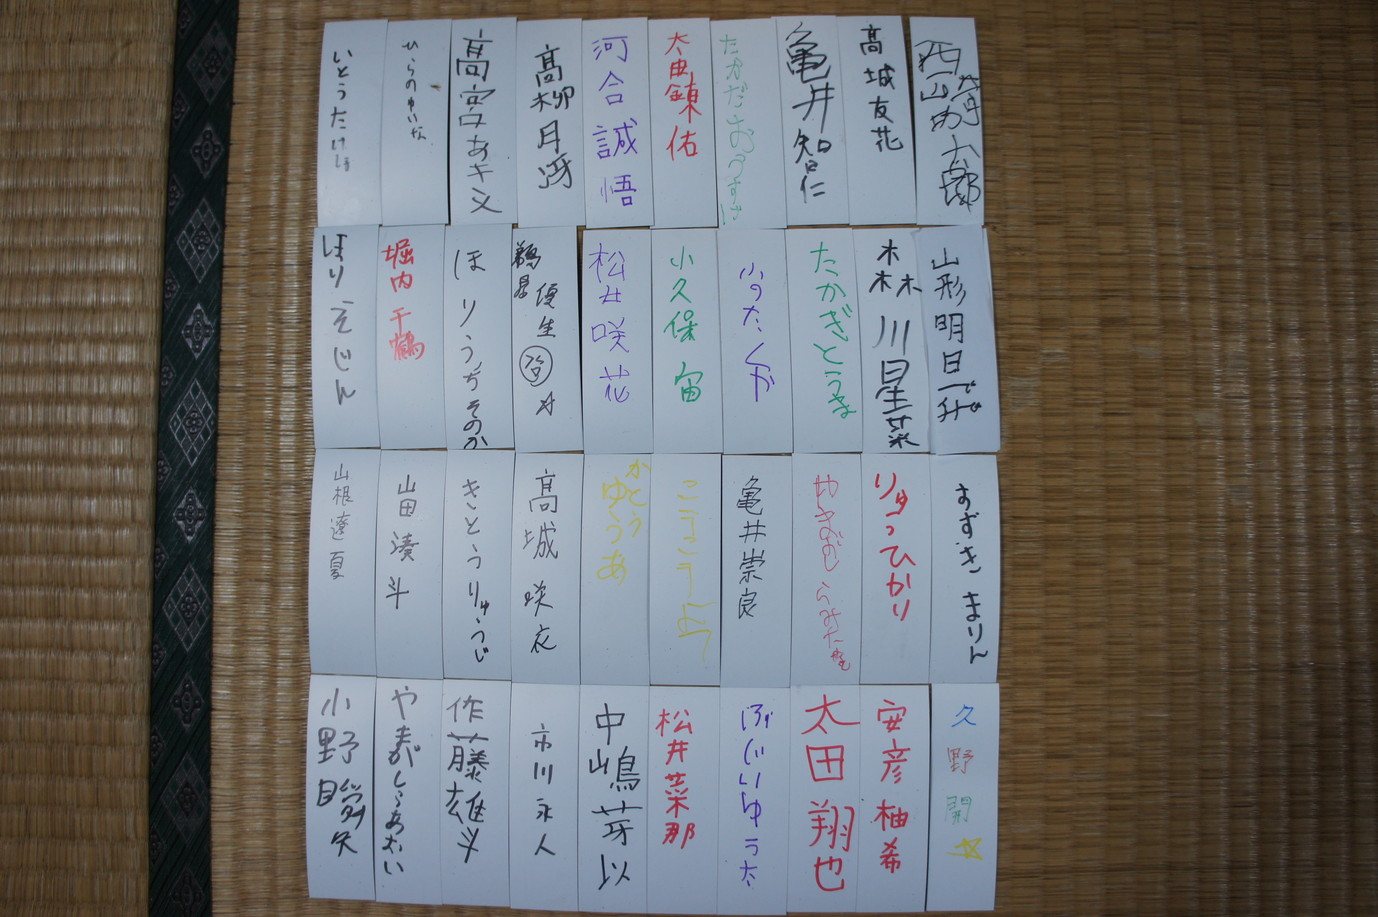 いとうたけしま
ひらのゆいな
高宮あき
高柳月
河合誠悟
太田錬佑
たかだおうすけ
亀井智仁
高城友花
西山太郎
ほりえじん
堀内千鶴
ほりうちそのか
優生
松井咲花
小久保宙
たかぎとうま
森川星菜
山形明日
山根遼夏
山田湊斗
きとうりゅうじ
高城咲衣
かとうゆうあ
亀井崇良
りゅうひかり
すずきまりん
小野瞬矢
やまがしらあおい
作藤雄斗
市川永人
中嶋芽以
松井菜那
ふじいゆうた
太田翔也
安彦柚希
久野開